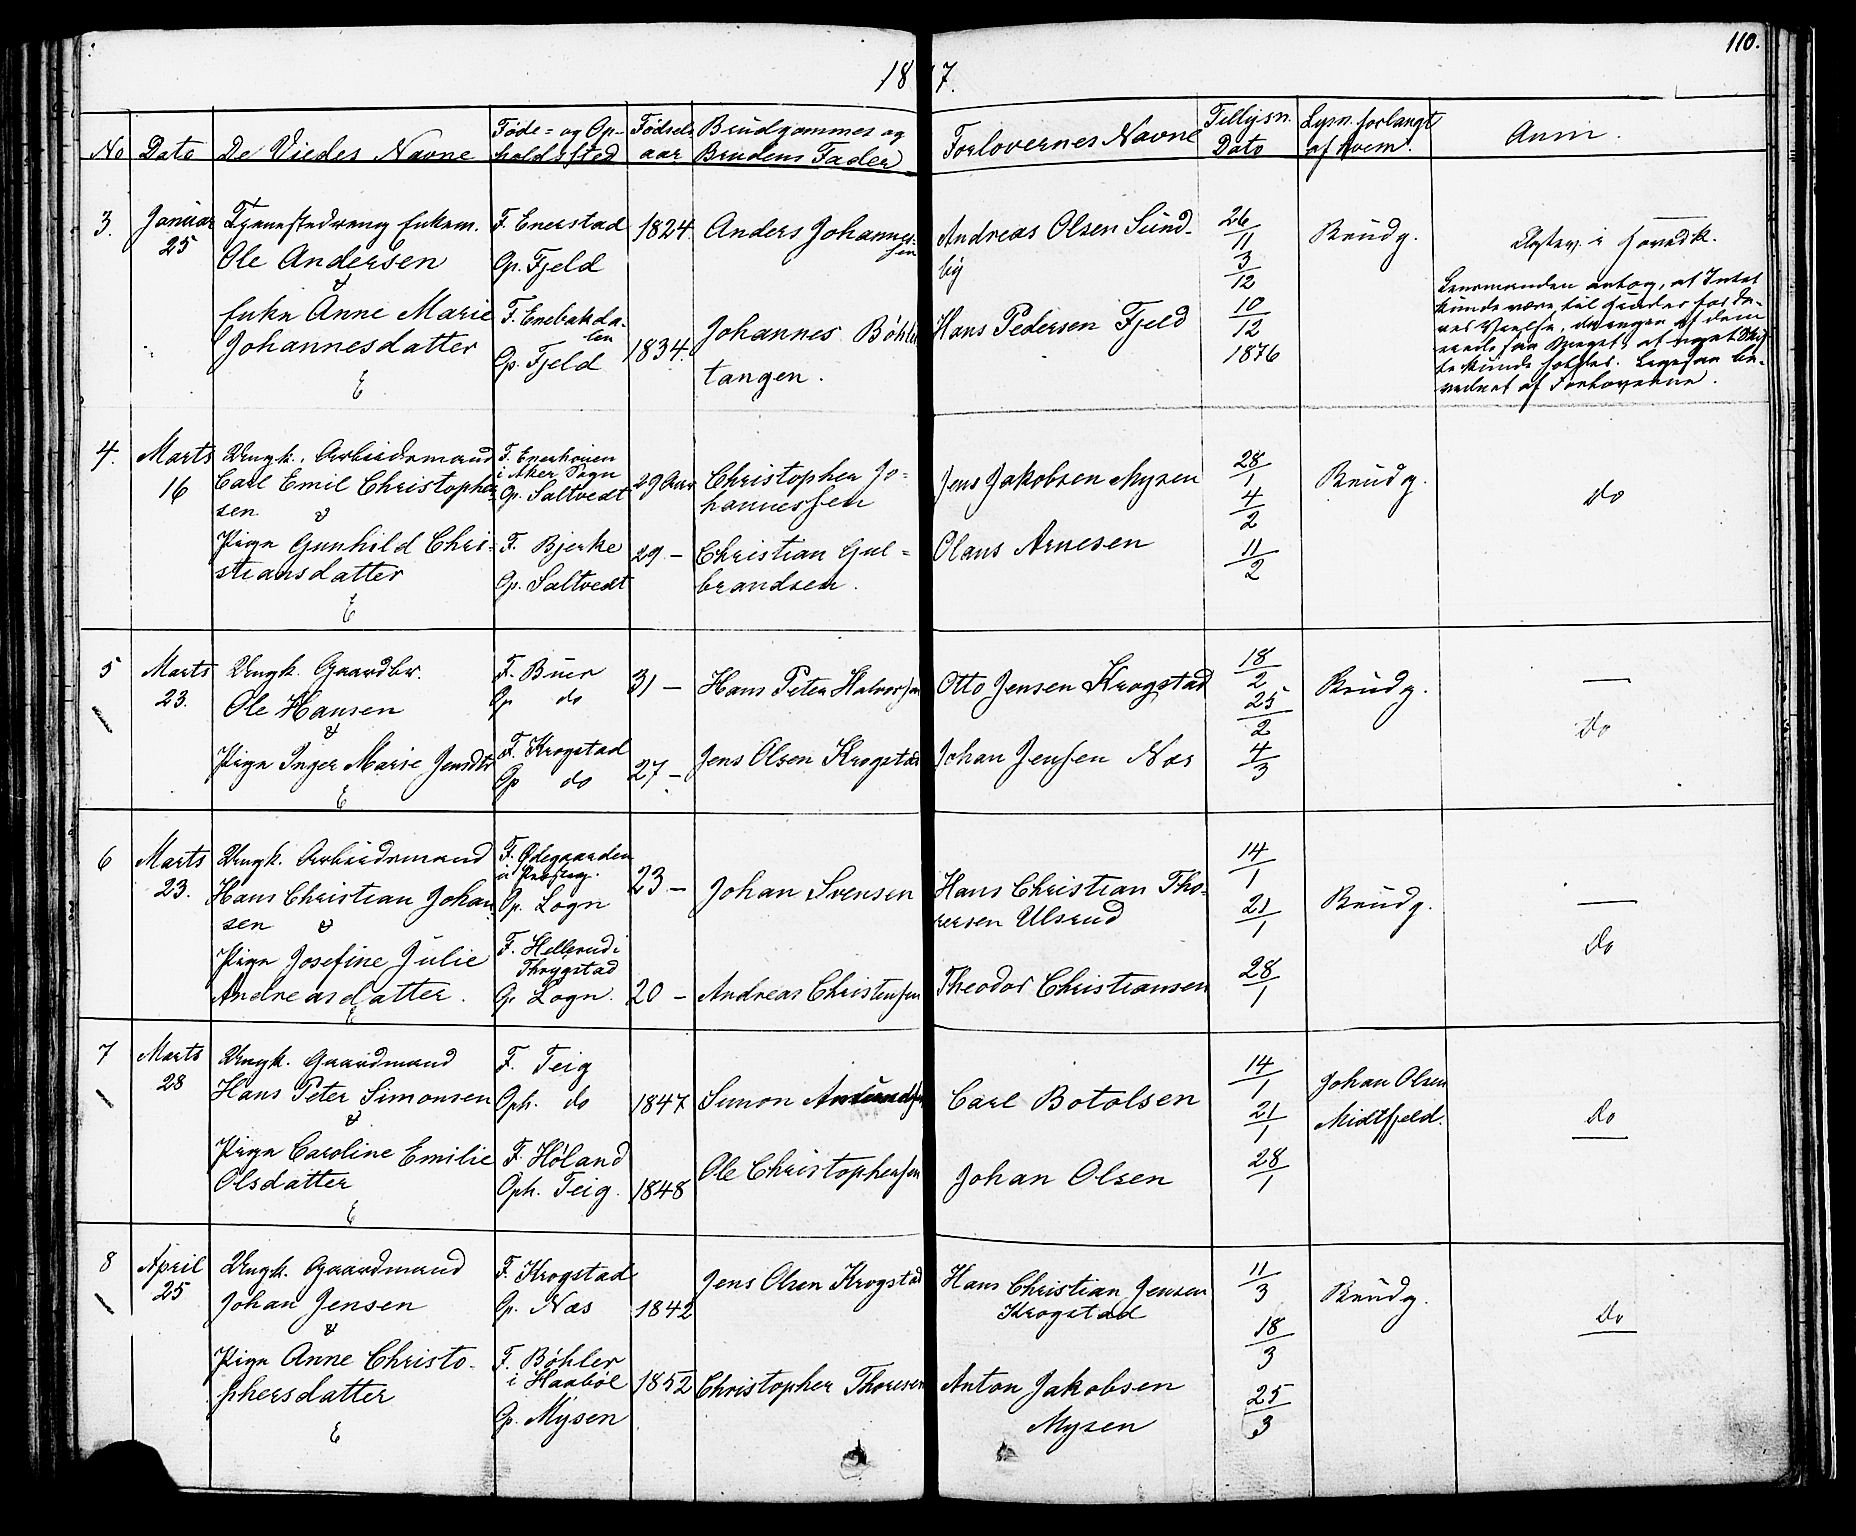 110.
18 7.
No Dato De Viedes Navne Føde= og Opholdssted Fødselsaar Brudgommes og Brudens Fader Forloverens Navne Tillysn. Dato Lysn. forlangt af hvem. Anm.
3. Januar 25
Tjenestedreng Enkem.
Ole Andersen
&
Enke Anne Marie
Johannesdatter
E
F. Enerstad
Op. Fjeld
F. Enebakdalen
Op. Fjeld
1824.
1834.
Anders Johannessen
Johannes Böhler
tangen.
Andreas Olsen Sundby
Hans Pedersen Fjeld
26/11
3/12
10/12
1876
Brudg.
i Hovedk.
Lensmanden antog, at Intet
kunde være til Hinder for De-
res Vielse, da ingen af dem
eiede saa Meget, at noget Skif-
te kunde holdes. Ligesaa be-
vidnet af Forloverne.
4. Marts 16
Ungk. Arbeidsmand
Carl Emil Christopher-
sen &
Pige Gunhild Chri-
stiansdatter
E
F. Enerhouen
i Aker Sogn
Op. Saltvedt
F. Bjerke
Op. Saltvedt
29 Aar
29 –
Christopher Jo=
hannessen
Christian Gul=
brandsen.
Jens Jakobsen Mysen
Olaus Arnesen
28/1
4/2
11/2
Brudg.
do
5 Marts 23.
Ungk. Gaardbr.
Ole Hansen
&
Pige Inger Marie Jensdtr
E
F. Buer
Op do
F. Krogstad
Op do
31 –
27 –
Hans Peter Halvorsen
Jens Olsen Krogstad
Otto Jensen Krogstad
Johan Jensen Næs
18/2
25/2
4/3
Brudg.
do
6 Marts 23.
Ungk. Arbeidsmand
Hans Christian Johan
sen &
Pige Josefine Julie
Andreasdatter.
E
F. Ødegaarden
Op. Logn
F. Hellerud i
Thrygstad
Op. Logn.
23 –
20 –
Johan Svensen
Andreas Christensen
Hans Christian Tho-
rersen Ulsrud
Theodor Christiansen
14/1
21/1
28/1
Brudg.
do
7 Marts 28
Ungk. Gaardmand
Hans Peter Simonsen
&
Pige Caroline Emilie
Olsdatter
E
F. Teig
Oph. do
F. Høland
Oph. Teig.
1847
1848
Simon Amundsen
Ole Christophersen
Carl Botolsen
Johan Olsen
14/1
21/1
28/1
Johan Olsen
Midtfjeld.
do
8 April 25
Ungk. Gaardmand
Johan Jensen
&
Pige Anne Christo-
phersdatter
E
F. Krogstad
Op. Næs
F. Böhler
i Haabøl
Op. Mysen
1842
1852
Jens Olsen Krogstad
Christopher Thoresen
Hans Christian Jensen
Krogstad
Anton Jakobsen
Mysen
11/3
18/3
25/3
Brudg.
do